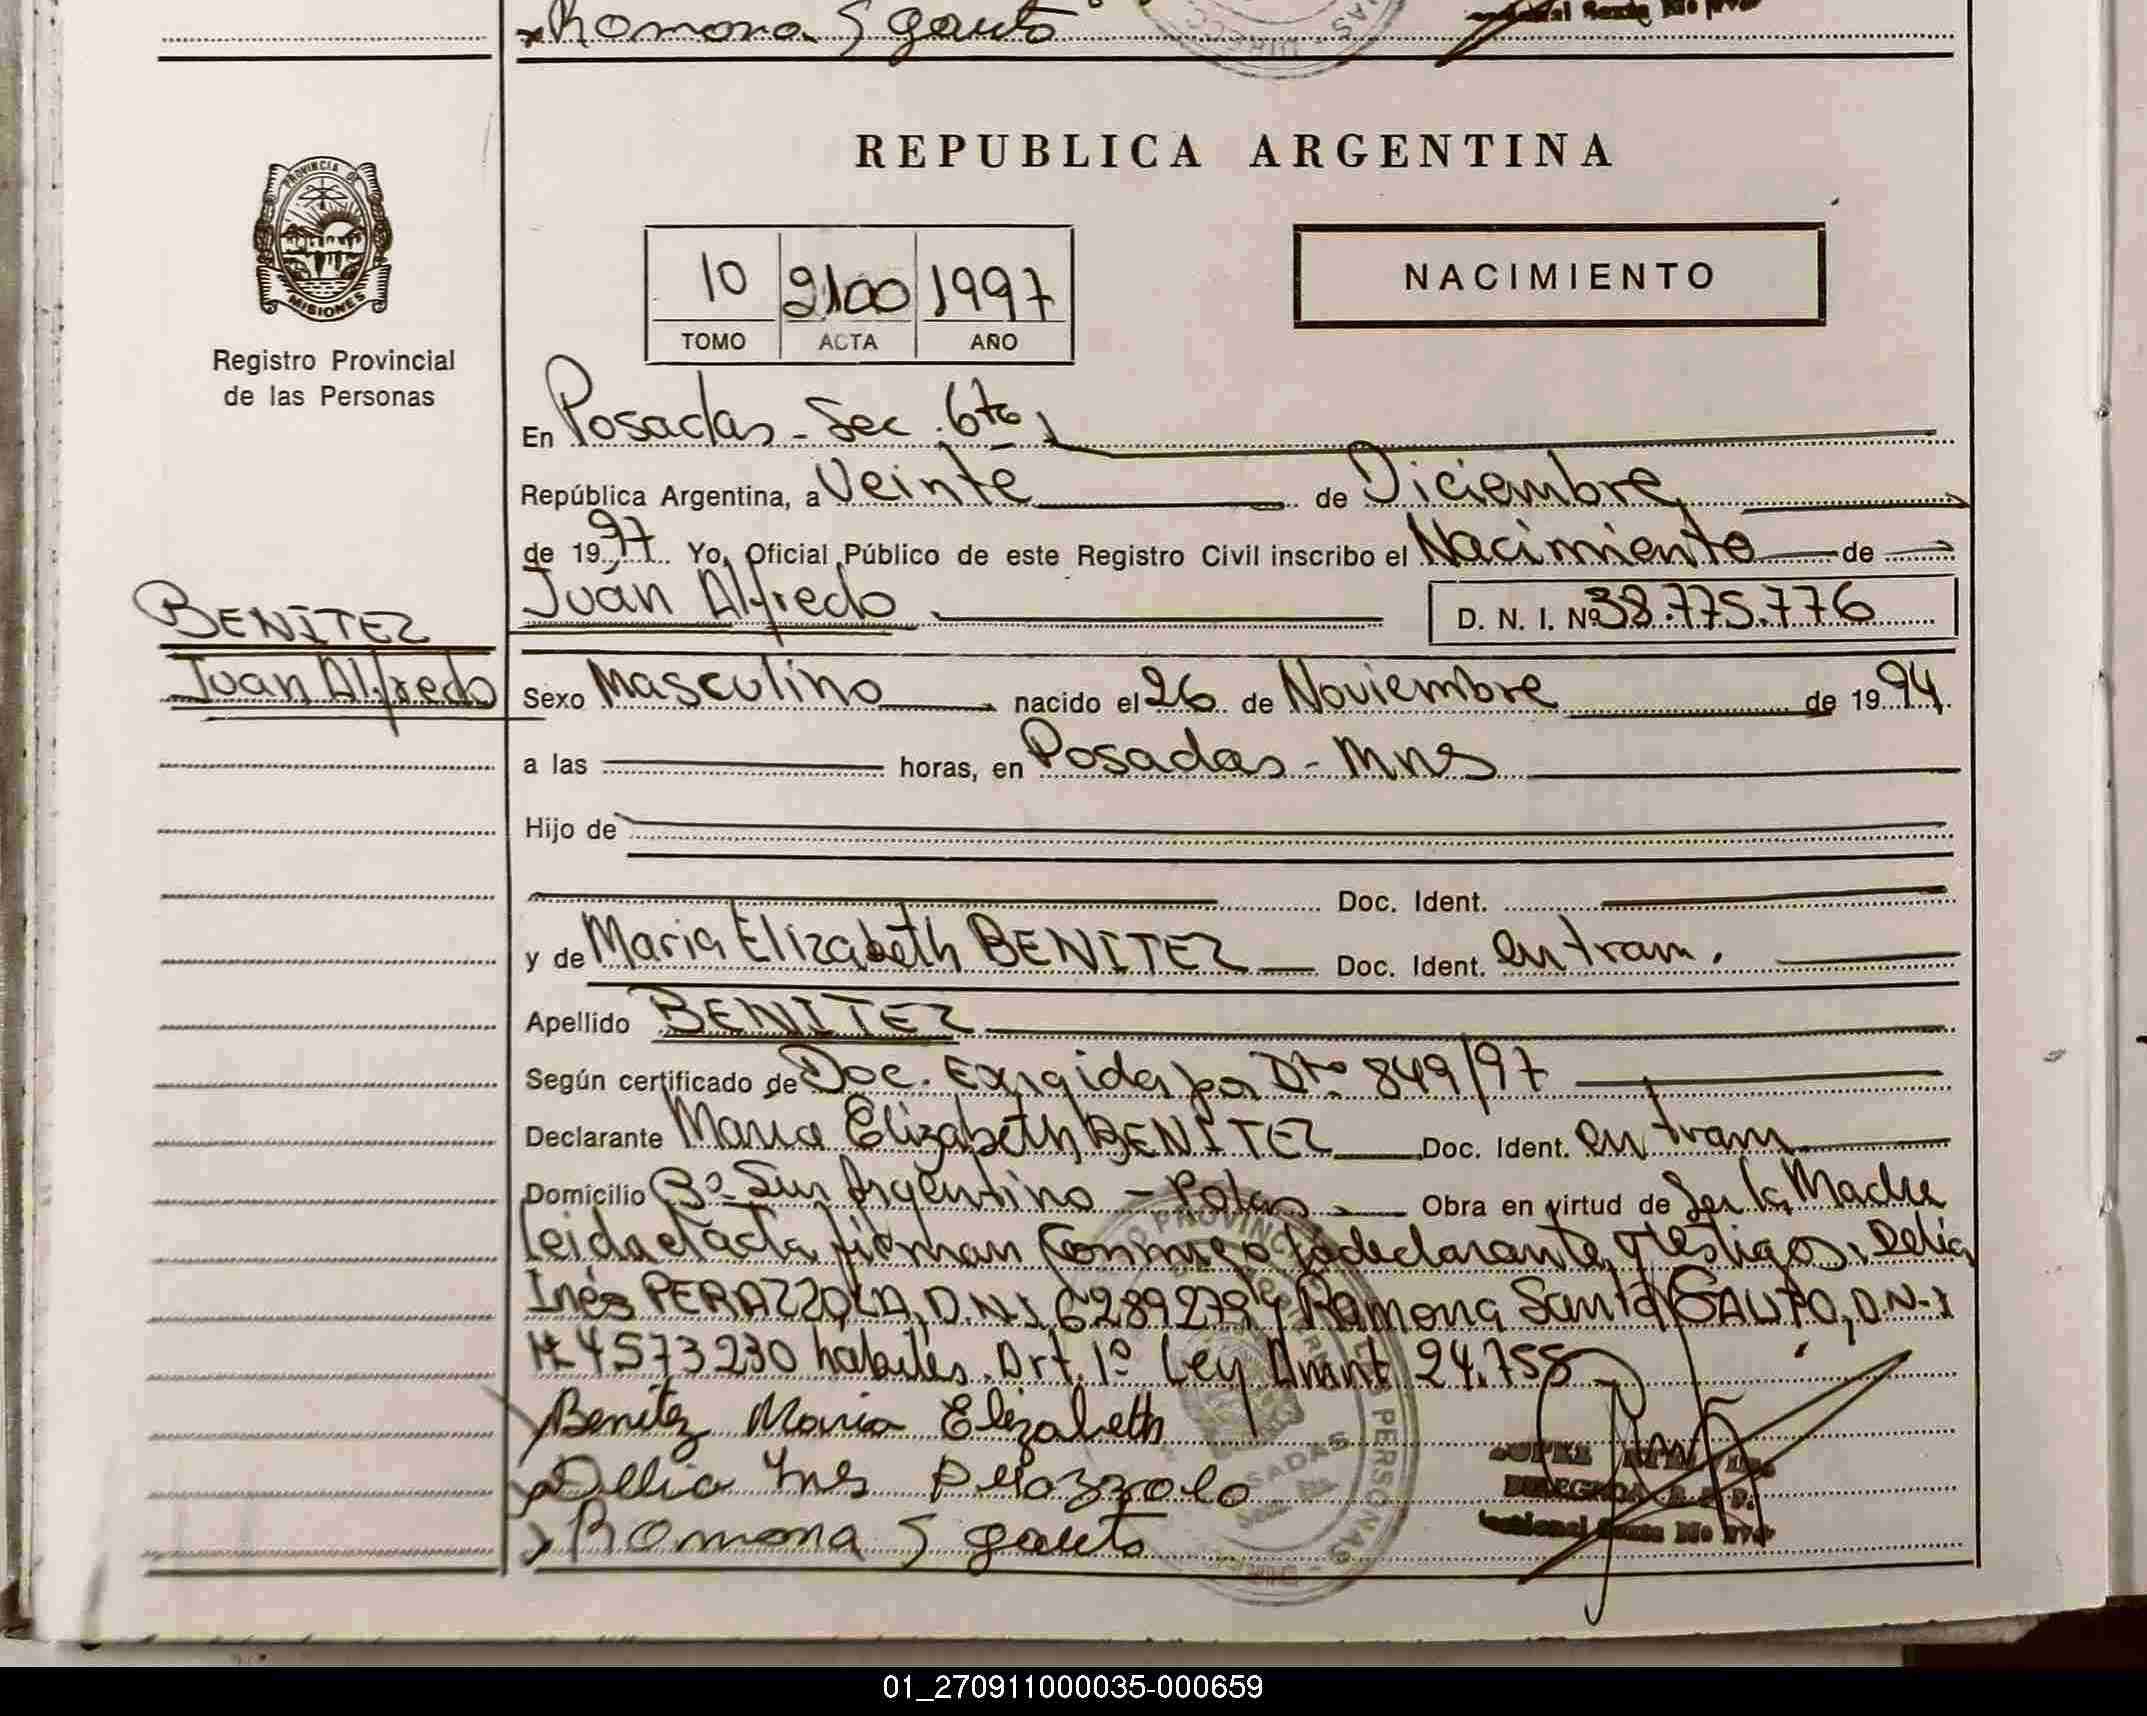 Ramona S gauto
REPUBLICA ARGENTINA
PROVINCIA DE
MISIONES
Registro Provincial
de las Personas
10 2100 1997
TOMO ACTA AÑO
NACIMIENTO
En Posadas - Sec. 6ta
República Argentina, a Veinte de Diciembre
de 1997 Yo, Oficial Público de este Registro Civil inscribo el Nacimiento de
Juan Alfredo D. N. I. Nº 38.775.776
BENITEZ
Juan Alfredo
Sexo Masculino nacido el 26 de Noviembre de 1994
a las horas, en Posadas - Mnes
Hijo de
Doc. Ident.
y de Maria Elizabeth BENITEZ Doc. Ident. en tram.
Apellido BENITEZ
Según certificado de Doc. Exigida por Dto. 849/97
Declarante Maria Elizabeth BENITEZ Doc. Ident. en tram
Domicilio Bº Sur Argentino - Pdas Obra en virtud de Ser la Madre
leida el acta firman conmigo la declarante y testigos: Delia
Inés PERAZZOLA, D.N.I. 6289279 y Ramona Santa GAUTO, D.N.I
Nº 4573230 habiles. Art. 1º Ley Amnt 24.755
Benitez Maria Elizabeth
Delia Ines Perazzolo
Ramona S gauto
POSADAS
PERSONAS
DELEGADA
01_270911000035-000659